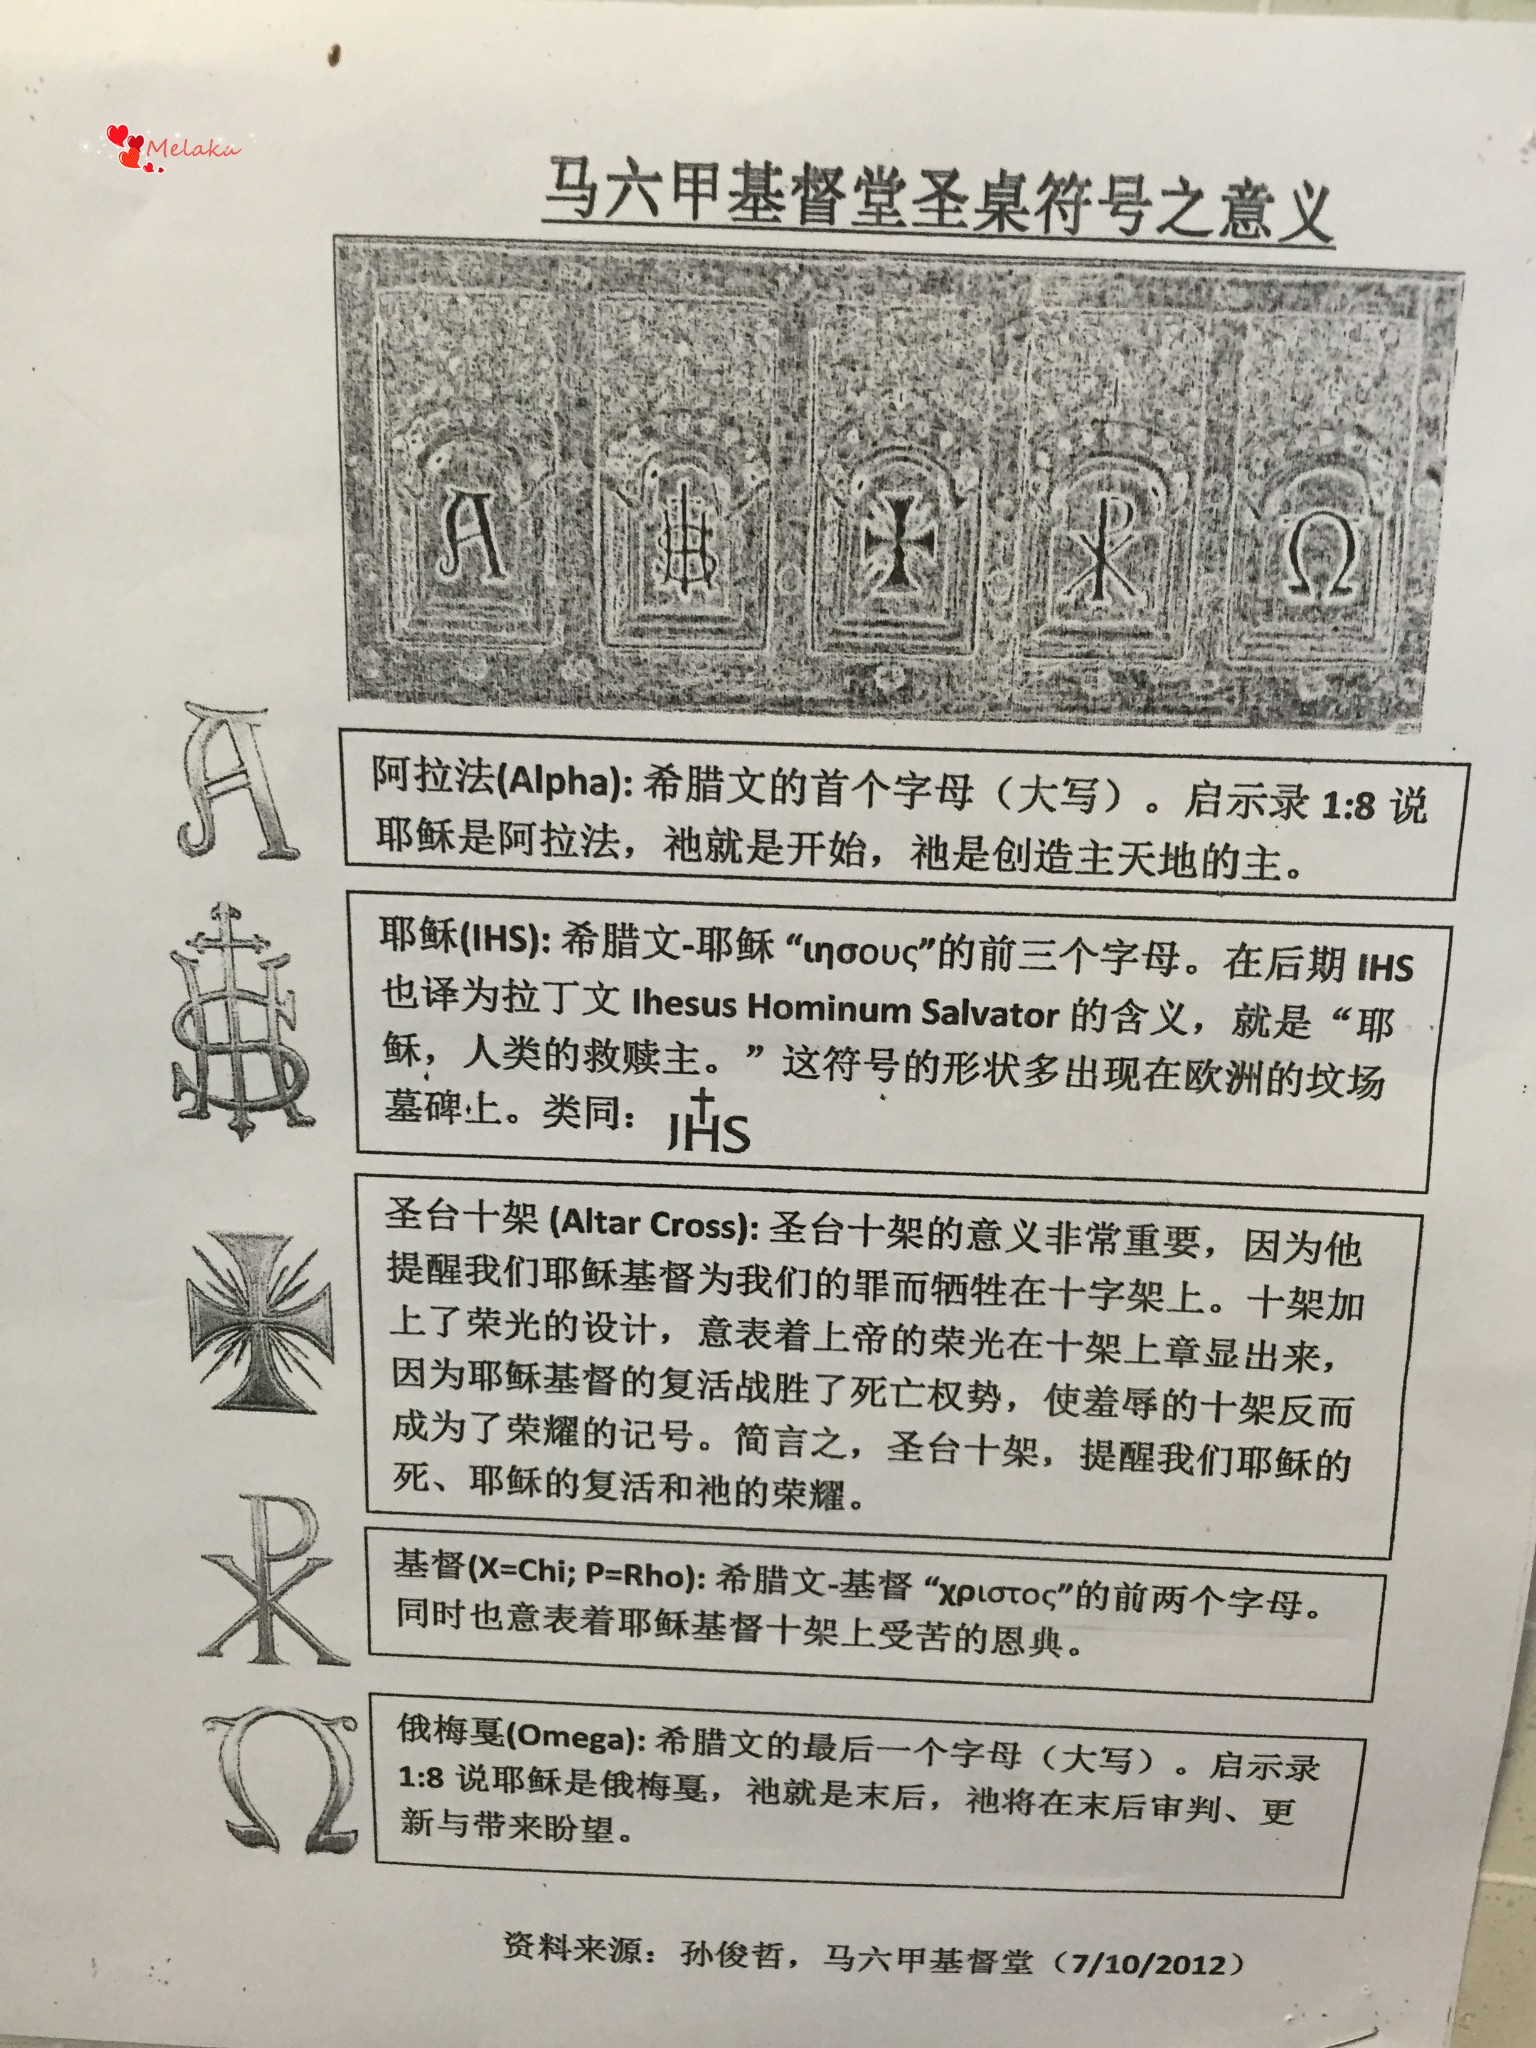 Melaka
马六甲基督堂圣桌符号之意义
阿拉法(Alpha): 希腊文的首个字母（大写）。启示录 1:8 说
耶稣是阿拉法，祂就是开始，祂是创造主天地的主。
耶稣(IHS): 希腊文-耶稣 “ιησους”的前三个字母。在后期 IHS
也译为拉丁文 Ihesus Hominum Salvator 的含义，就是“耶
稣，人类的救赎主。”这符号的形状多出现在欧洲的坟场
墓碑上。类同：IHS
圣台十架 (Altar Cross): 圣台十架的意义非常重要，因为他
提醒我们耶稣基督为我们的罪而牺牲在十字架上。十架加
上了荣光的设计，意表着上帝的荣光在十架上章显出来，
因为耶稣基督的复活战胜了死亡权势，使羞辱的十架反而
成为了荣耀的记号。简言之，圣台十架，提醒我们耶稣的
死、耶稣的复活和祂的荣耀。
基督(X=Chi; P=Rho): 希腊文-基督 “χριστος”的前两个字母。
同时也意表着耶稣基督十架上受苦的恩典。
俄梅戛(Omega): 希腊文的最后一个字母（大写）。启示录
1:8 说耶稣是俄梅戛，祂就是末后，祂将在末后审判、更
新与带来盼望。
资料来源：孙俊哲，马六甲基督堂（7/10/2012）